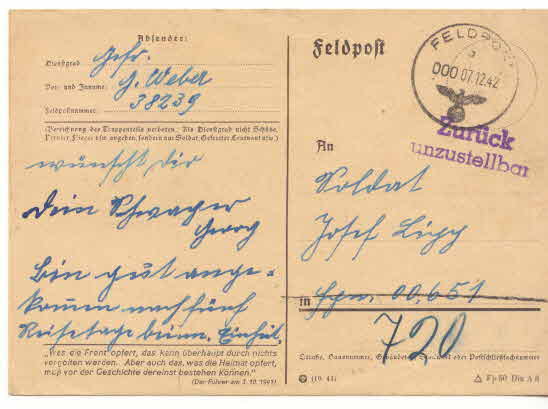 Absender:
Dienstgrad Gefr.
Vor- und Zuname: G. Weber
Feldpostnummer: 38239
(Bezeichnung des Truppenteils verboten. Als Dienstgrad nicht Schütze,
Panzer, Flieger usw. angeben, sondern nur Soldat, Gefreiter, Leutnant usw.)
wünscht Dir
Dein Schwager
Georg
Bin gut ange-
kommen nach fünf
Reisetage beim
„Was die Front opfert, das kann überhaupt durch nichts
vergolten werden. Aber auch das, was die Heimat opfert,
muß vor der Geschichte dereinst bestehen können.“
(Der Führer am 3. 10. 1941)
Feldpost
FELDPOST
b
000 07.12.42
Zurück
unzustellbar
An
Soldat
Josef Lipp
in Fpn. 00.651
720
Ortsteil oder Postschließfachnummer
(10. 41)
Fp 60 Din A 6